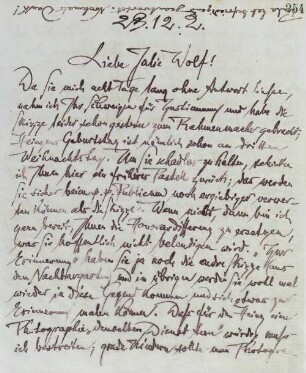 254
29.12.2.
Liebe Julie Wolf!
Da Sie mich acht Tage lang ohne Antwort liessen,
nahm ich Ihr Schweigen für Zustimmung und habe die
Skizze leider schon gestern zum Rahmenmacher gebracht;
Geburtstag ist nämlich schon am dritten
Weihnachtstag. Um Sie schadlos zu halten, schicke
ich Ihnen hier als früheres Pastell zurück; das werden
Sie sicher beim p. p. Publicum noch ergiebiger verwer-
ten können als die Skizze. Wenn nicht, dann bin ich
gern bereit, Ihnen die Honorardifferenz zu ersetzen,
was Sie hoffentlich nicht beleidigen wird. "Zur
Erinnerung" haben Sie ja noch die andre Skizze aus
dem Nachbargarten, und im übrigen werden Sie wohl mal
wieder in diese Gegend kommen und sich etwas zur
Erinnerung malen können. Dass für den eine
Photographie "denselben Dienst thun" würde, muss
ich bestreiten; grade Kindern sollte man Photogra-